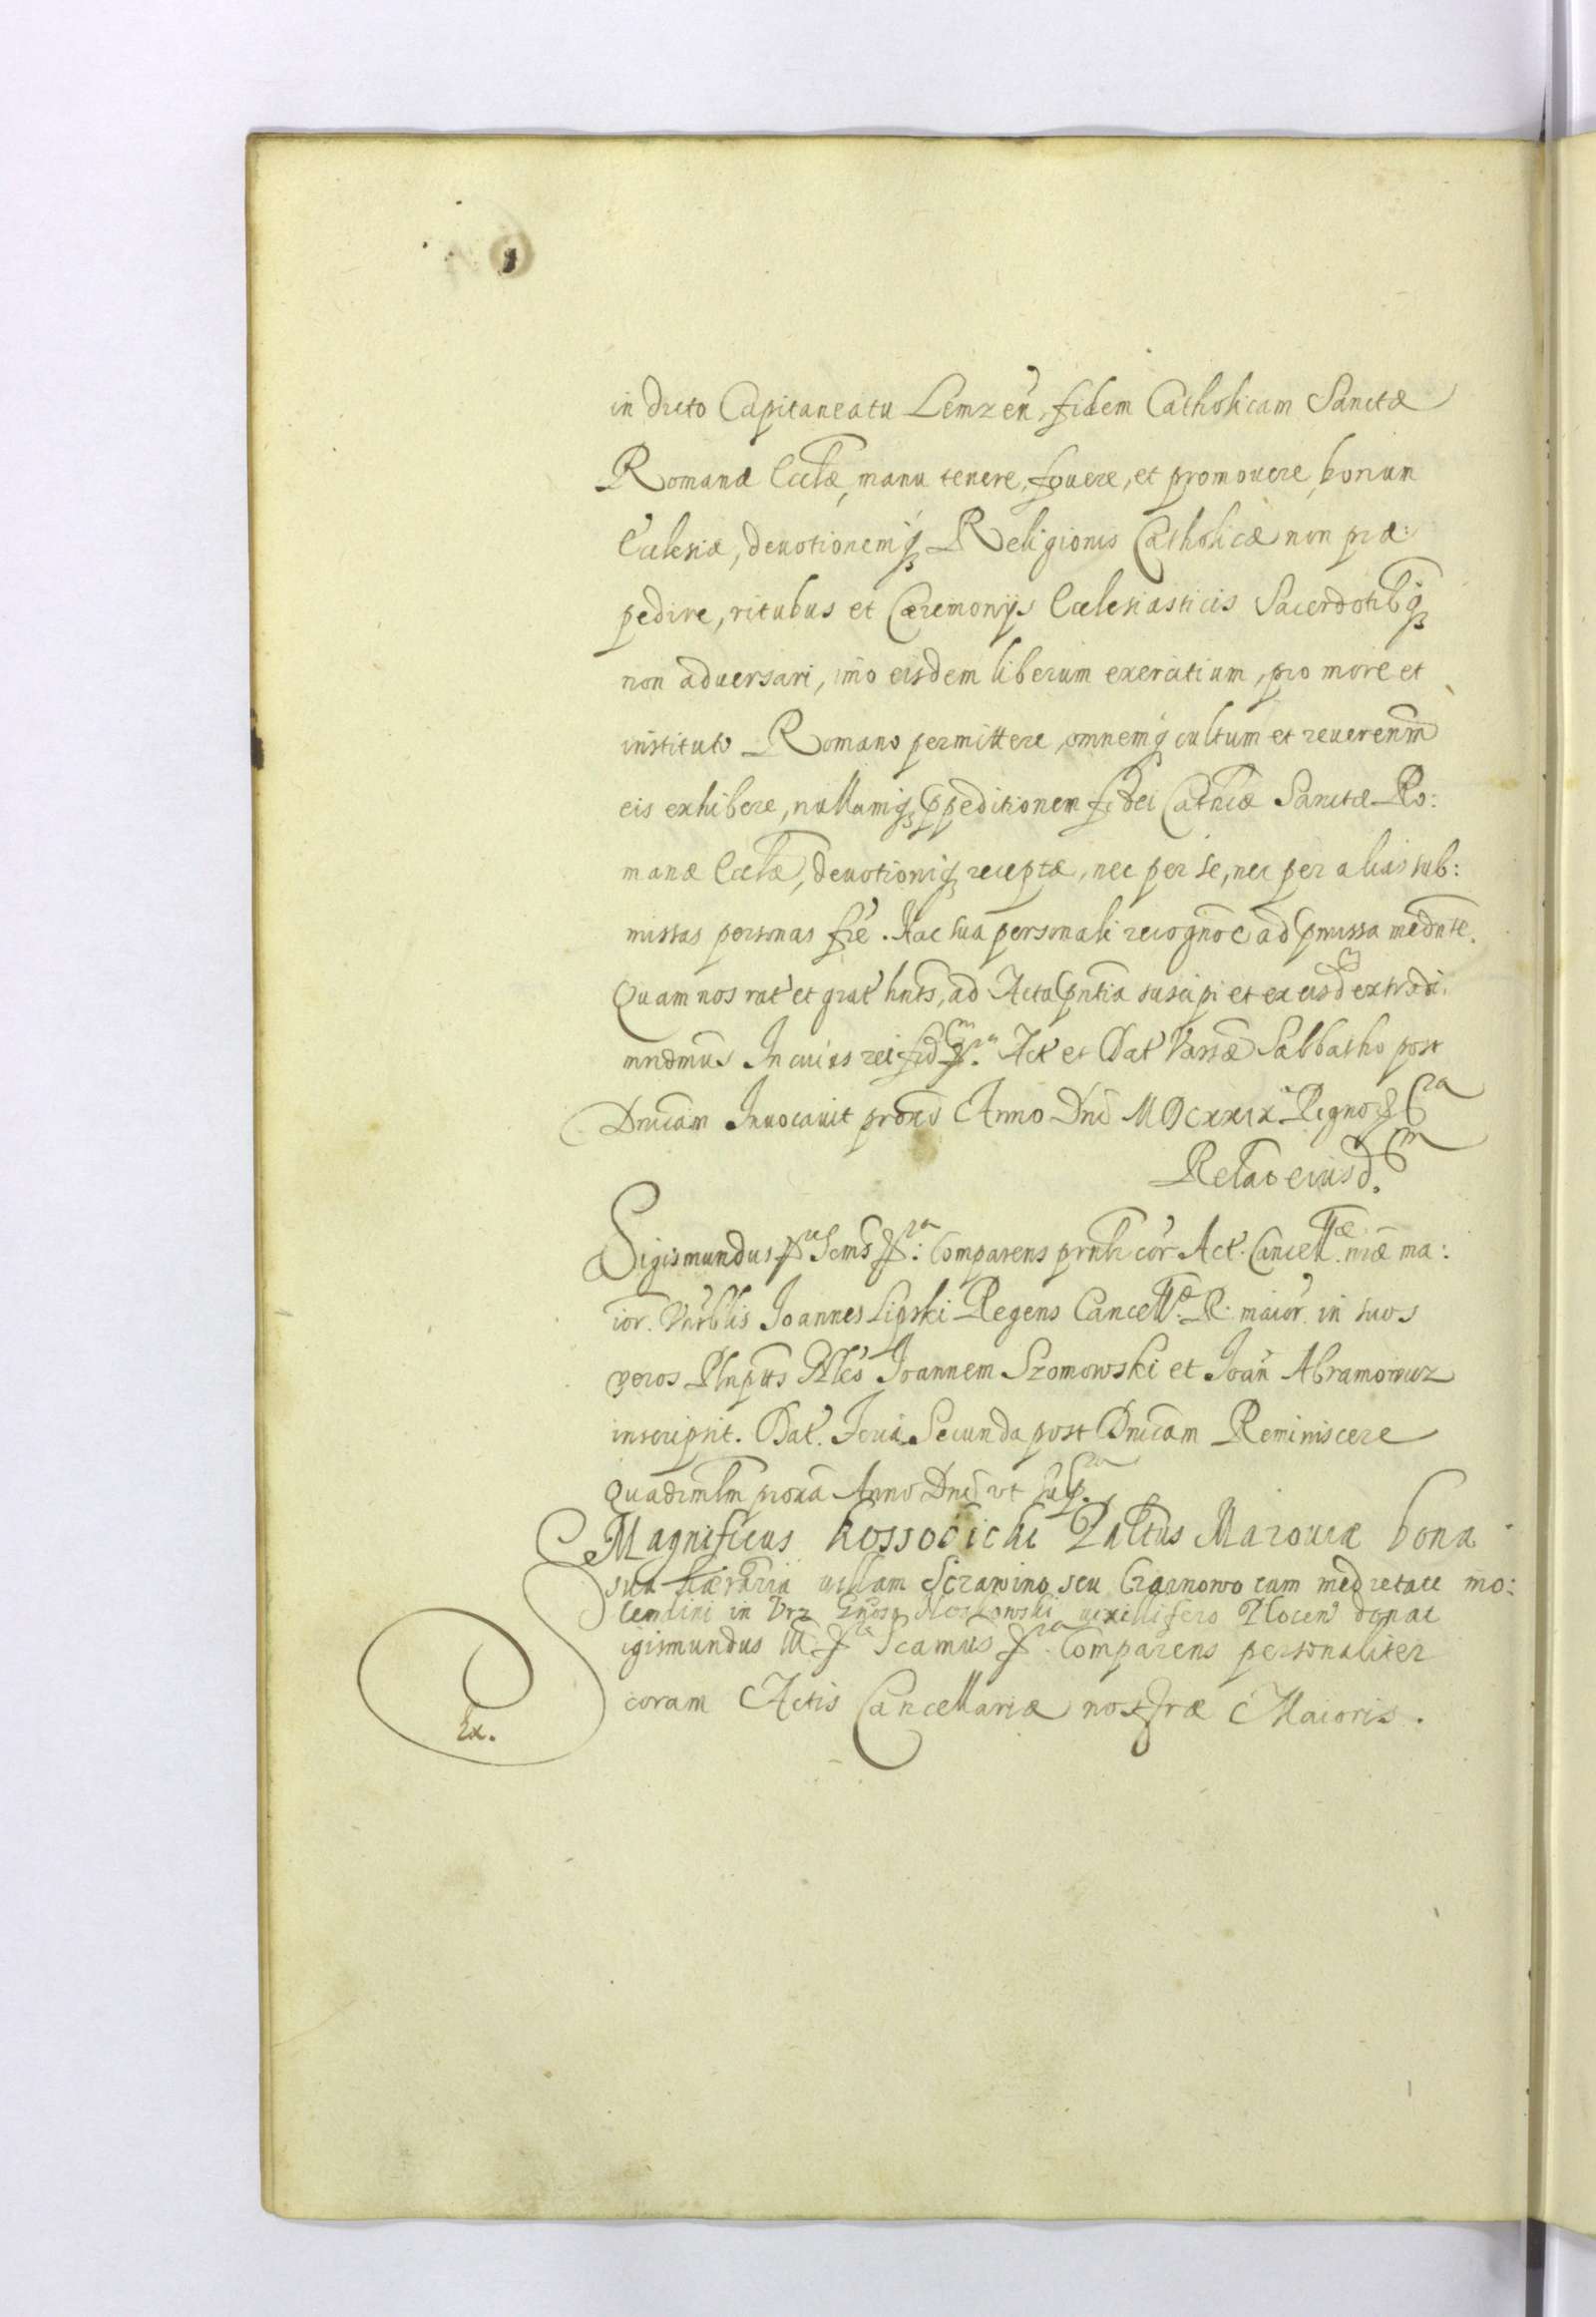 in dicto Capitaneatu Lemzen̄, fidem Catholicam Sanctæ
Romanæ Eccl̄æ, manu tenere, fouere, et promouere, bonum
Ecclesiæ, deuotionemq̃ Religionis Catholicæ non præ:
pedire, ritubus et Cæremonijs Ecclesiasticis Sacerdotibq̃
non aduersari, imo eisdem liberum exercitium, pro more et
instituto Romano permittere, omnemq̃ cultum et reueren̄m
eis exhibere, nullamq̃ p̄peditionem fidei Cathcæ Sanctæ Ro:
manæ Eccl̄æ, deuotioniq̃ receptæ, nec per se, nec per alias sub:
missas personas fīe. Hac sua personali recognōe ad p̄missa med̄nte.
Quam nos rat̄ et grat̄ hn̄ts, ad Acta p̄ntia suscipi et ex eisd̄ extradi
mn̄dmus In cuius rei fid̄ Act et Dat Varsæ Sabbatho post
Dn̄icam Inuocauit prox̄o Anno Dn̄i MDCXXIX Regnoꝝ
Relatō eiusd̄.
Sigismundus Comparens prn̄lr cor̄ Act. Cancell̄æ n̄ræ ma:
ior. Joannes Lipski Regens Cancell̄æ R. maior. in suos
veros Pln̄ptts Joannem Szomowski et Joan̄ Abramowicz
inscripsit. Dat. Feria Secunda post Dn̄icam Reminiscere
Quadrm̄lm prox̄a Anno Dn̄i vt sup.
Magnificus Kossobicki Palt̄us Mazouiæ bona
sua hæred̄ria villam Scrawino seu Czarnowo cum medietate mo:
lendini in Vrz Gn̄oso Noskowski vexillifero Plocen̄ donat
Sigismundus III Comparens personaliter
coram Actis Cancellariæ nostræ Maioris.
Ex.